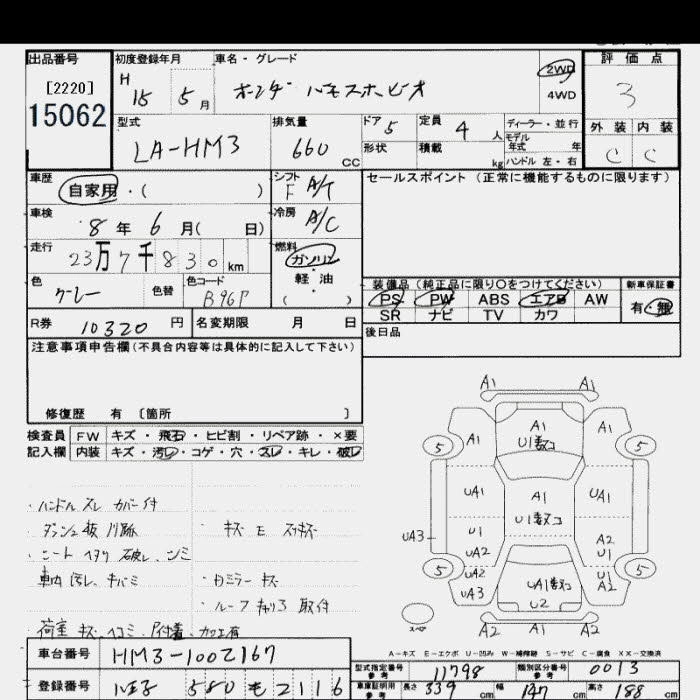 出品番号 初度登録年月 車名・グレード 評価点
[2220] H 15 5月 ホンダ バモスホビオ 2WD 4WD 3
15062
型式 排気量 ドア 5 定員 4 人 ディーラー・並行 外装 内装
LA-HM3 660 CC 形状 積載 kg モデル年式 年 ハンドル 左・右 C C
車歴 自家用・( ) シフト F A/T セールスポイント (正常に機能するものに限ります)
車検 8年 6月( 日) 冷房 A/C
走行 23万7千830km 燃料 ガソリン
色 グレー 色替 色コード B96P 軽油 ( )
装備品(純正品に限り〇をつけてください) 新車保証書
PS PW ABS エアB AW 有・無
SR ナビ TV カワ
R券 10320円 名変期限 月 日 後日品
注意事項申告欄(不具合内容等は具体的に記入して下さい)
修復歴 有 〔箇所 〕
検査員 FW キズ・飛石・ヒビ割・リペア跡・×要
記入欄 内装 キズ・汚レ・コゲ・穴・スレ・キレ・破レ
・ハンドル スレ カバー付
・キズ E
シート ヘタリ 破レ、シミ
車内 汚レ、キバミ
・Bミラー キズ
・ルーフ 取付
荷室 キズ ヘコミ
A1 A1
A1 A1 A1
U1
5 5
UA1 A1 UA1
U1
UA3 U1 A2
UA2 U1
UA2 U1
5 UA3 UA1 A2 5
U2
スペア A2 A1 U1 A2
A-キズ E-エクボ U-凹み W-補修跡 S-サビ C-腐食 XX-交換済
車台番号 HM3-1002167
型式指定番号 参考 11798 類別区分番号 参考 0013
登録番号 580 も 2116
車庫証明用 参考 長さ 339 cm 幅 147 cm 高さ 188 cm